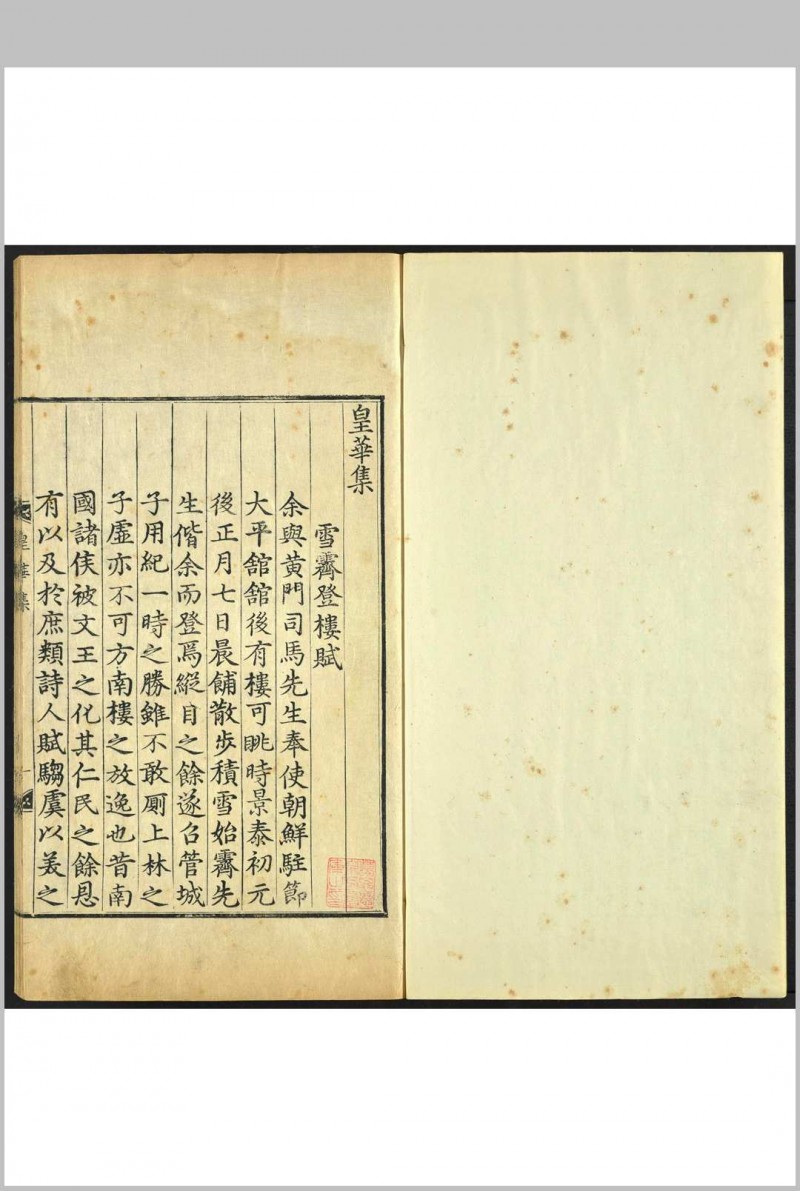 皇華集
雪霽登樓賦
余與黃門司馬先生奉使朝鮮駐節
大平舘舘後有樓可眺時景泰初元
後正月七日晨餔散步積雪始霽先
生偕余而登焉縱目之餘遂召管城
子用紀一時之勝雖不敢厠上林之
子虛亦不可方南樓之放逸也昔南
國諸侯被文王之化其仁民之餘恩
有以及於庶類詩人賦騶虞以美之
皇華集
一